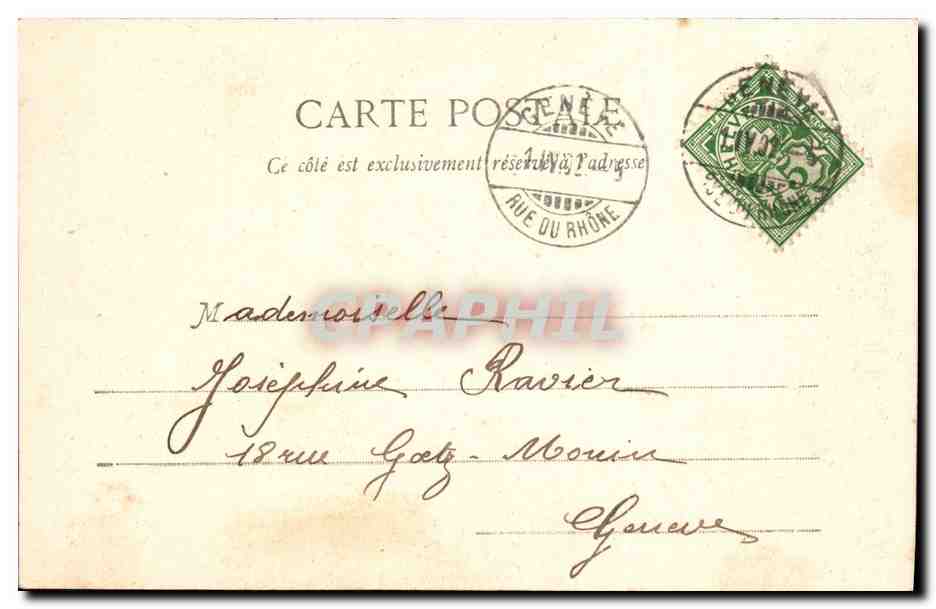 CARTE POSTALE
Ce côté est exclusivement réservé à l'adresse
GENÈVE
RUE DU RHÔNE
GENÈVE
HELVETIA
5
RUE DU RHÔNE
CPAPHIL
Mademoiselle
Joséphine Ravier
18 rue Gœtz-Monin
Geneve